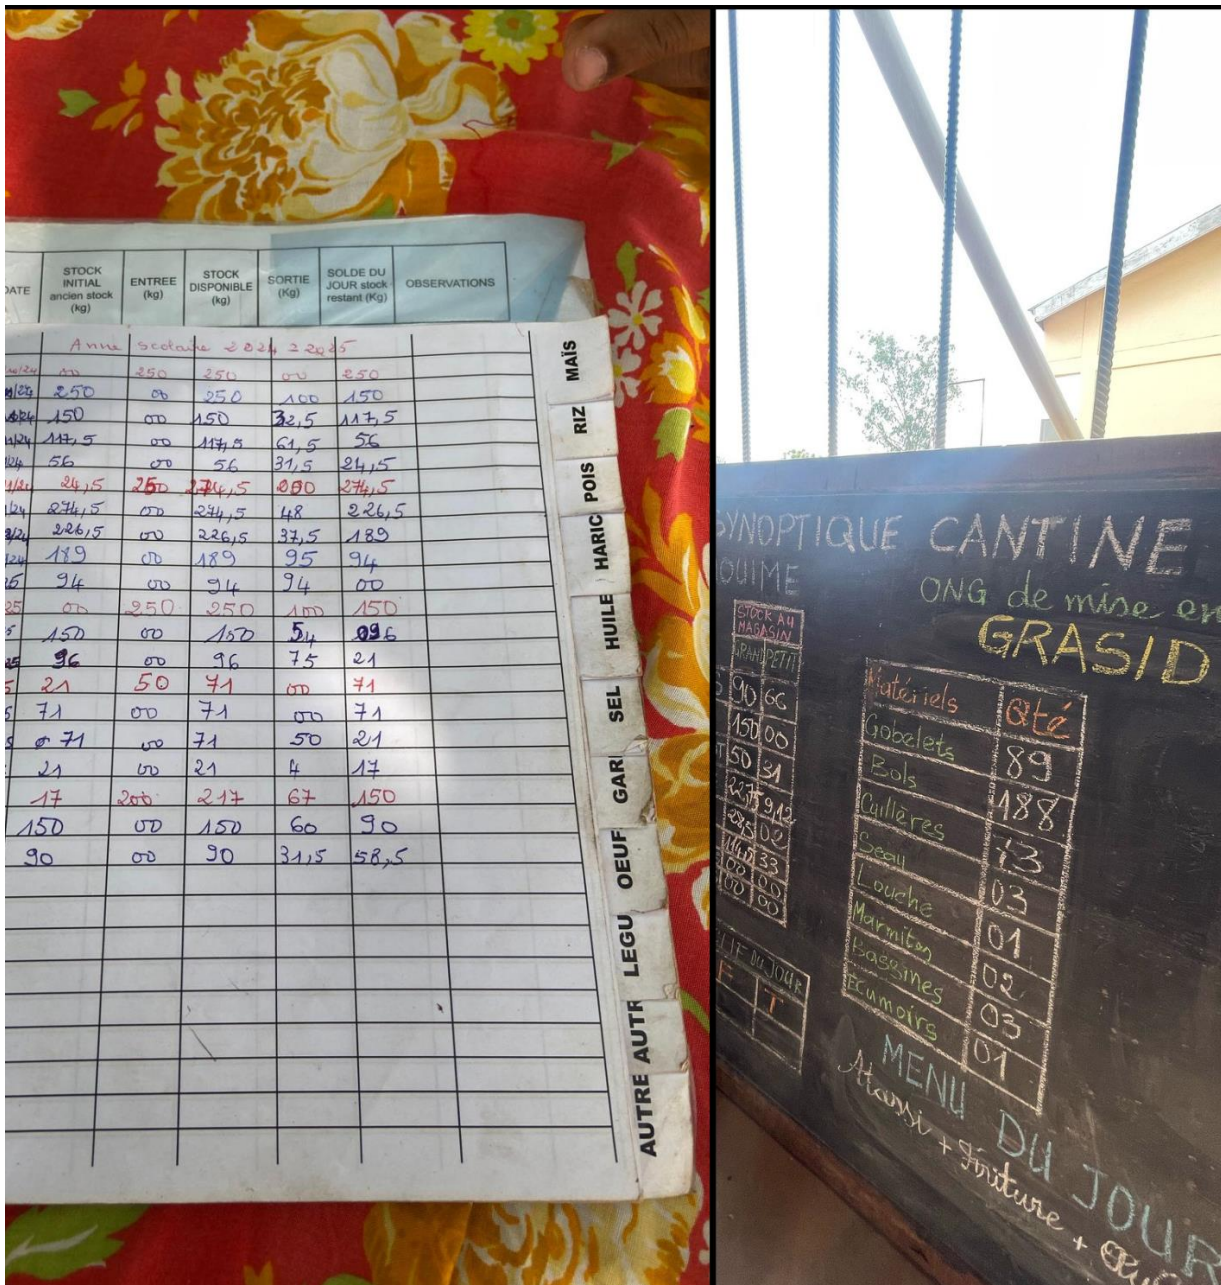 DATE STOCK INITIAL ancien stock (kg) ENTREE (kg) STOCK DISPONIBLE (kg) SORTIE (Kg) SOLDE DU JOUR stock restant (Kg) OBSERVATIONS
Anne scolaire 2024 2 2025
00 250 250 00 250
250 00 250 100 150
150 00 150 32,5 117,5
117,5 00 117,5 61,5 56
56 00 56 31,5 24,5
24,5 250 274,5 000 274,5
274,5 00 274,5 48 226,5
226,5 00 226,5 37,5 189
189 00 189 95 94
94 00 94 94 00
00 250 250 100 150
150 00 150 54 096
96 00 96 75 21
21 50 71 00 71
71 00 71 00 71
71 00 71 50 21
21 00 21 4 17
17 200 217 67 150
150 00 150 60 90
90 00 90 31,5 58,5
MAÏS
RIZ
POIS
HARIC
HUILE
SEL
GARI
OEUF
LEGU
AUTR
AUTRE
SYNOPTIQUE CANTINE
OUIME
ONG de mise en
GRASID
STOCK AU MAGASIN
GRAND PETIT
90 66
150 00
50 31
9,12
02
33
00 00
00 00
DU JOUR
F T
Matériels Qté
Gobelets 89
Bols 188
Cuillères
Seau 03
Louche 01
Marmites 02
Bassines 03
Ecumoirs 01
MENU DU JOUR
Atassi + Friture +